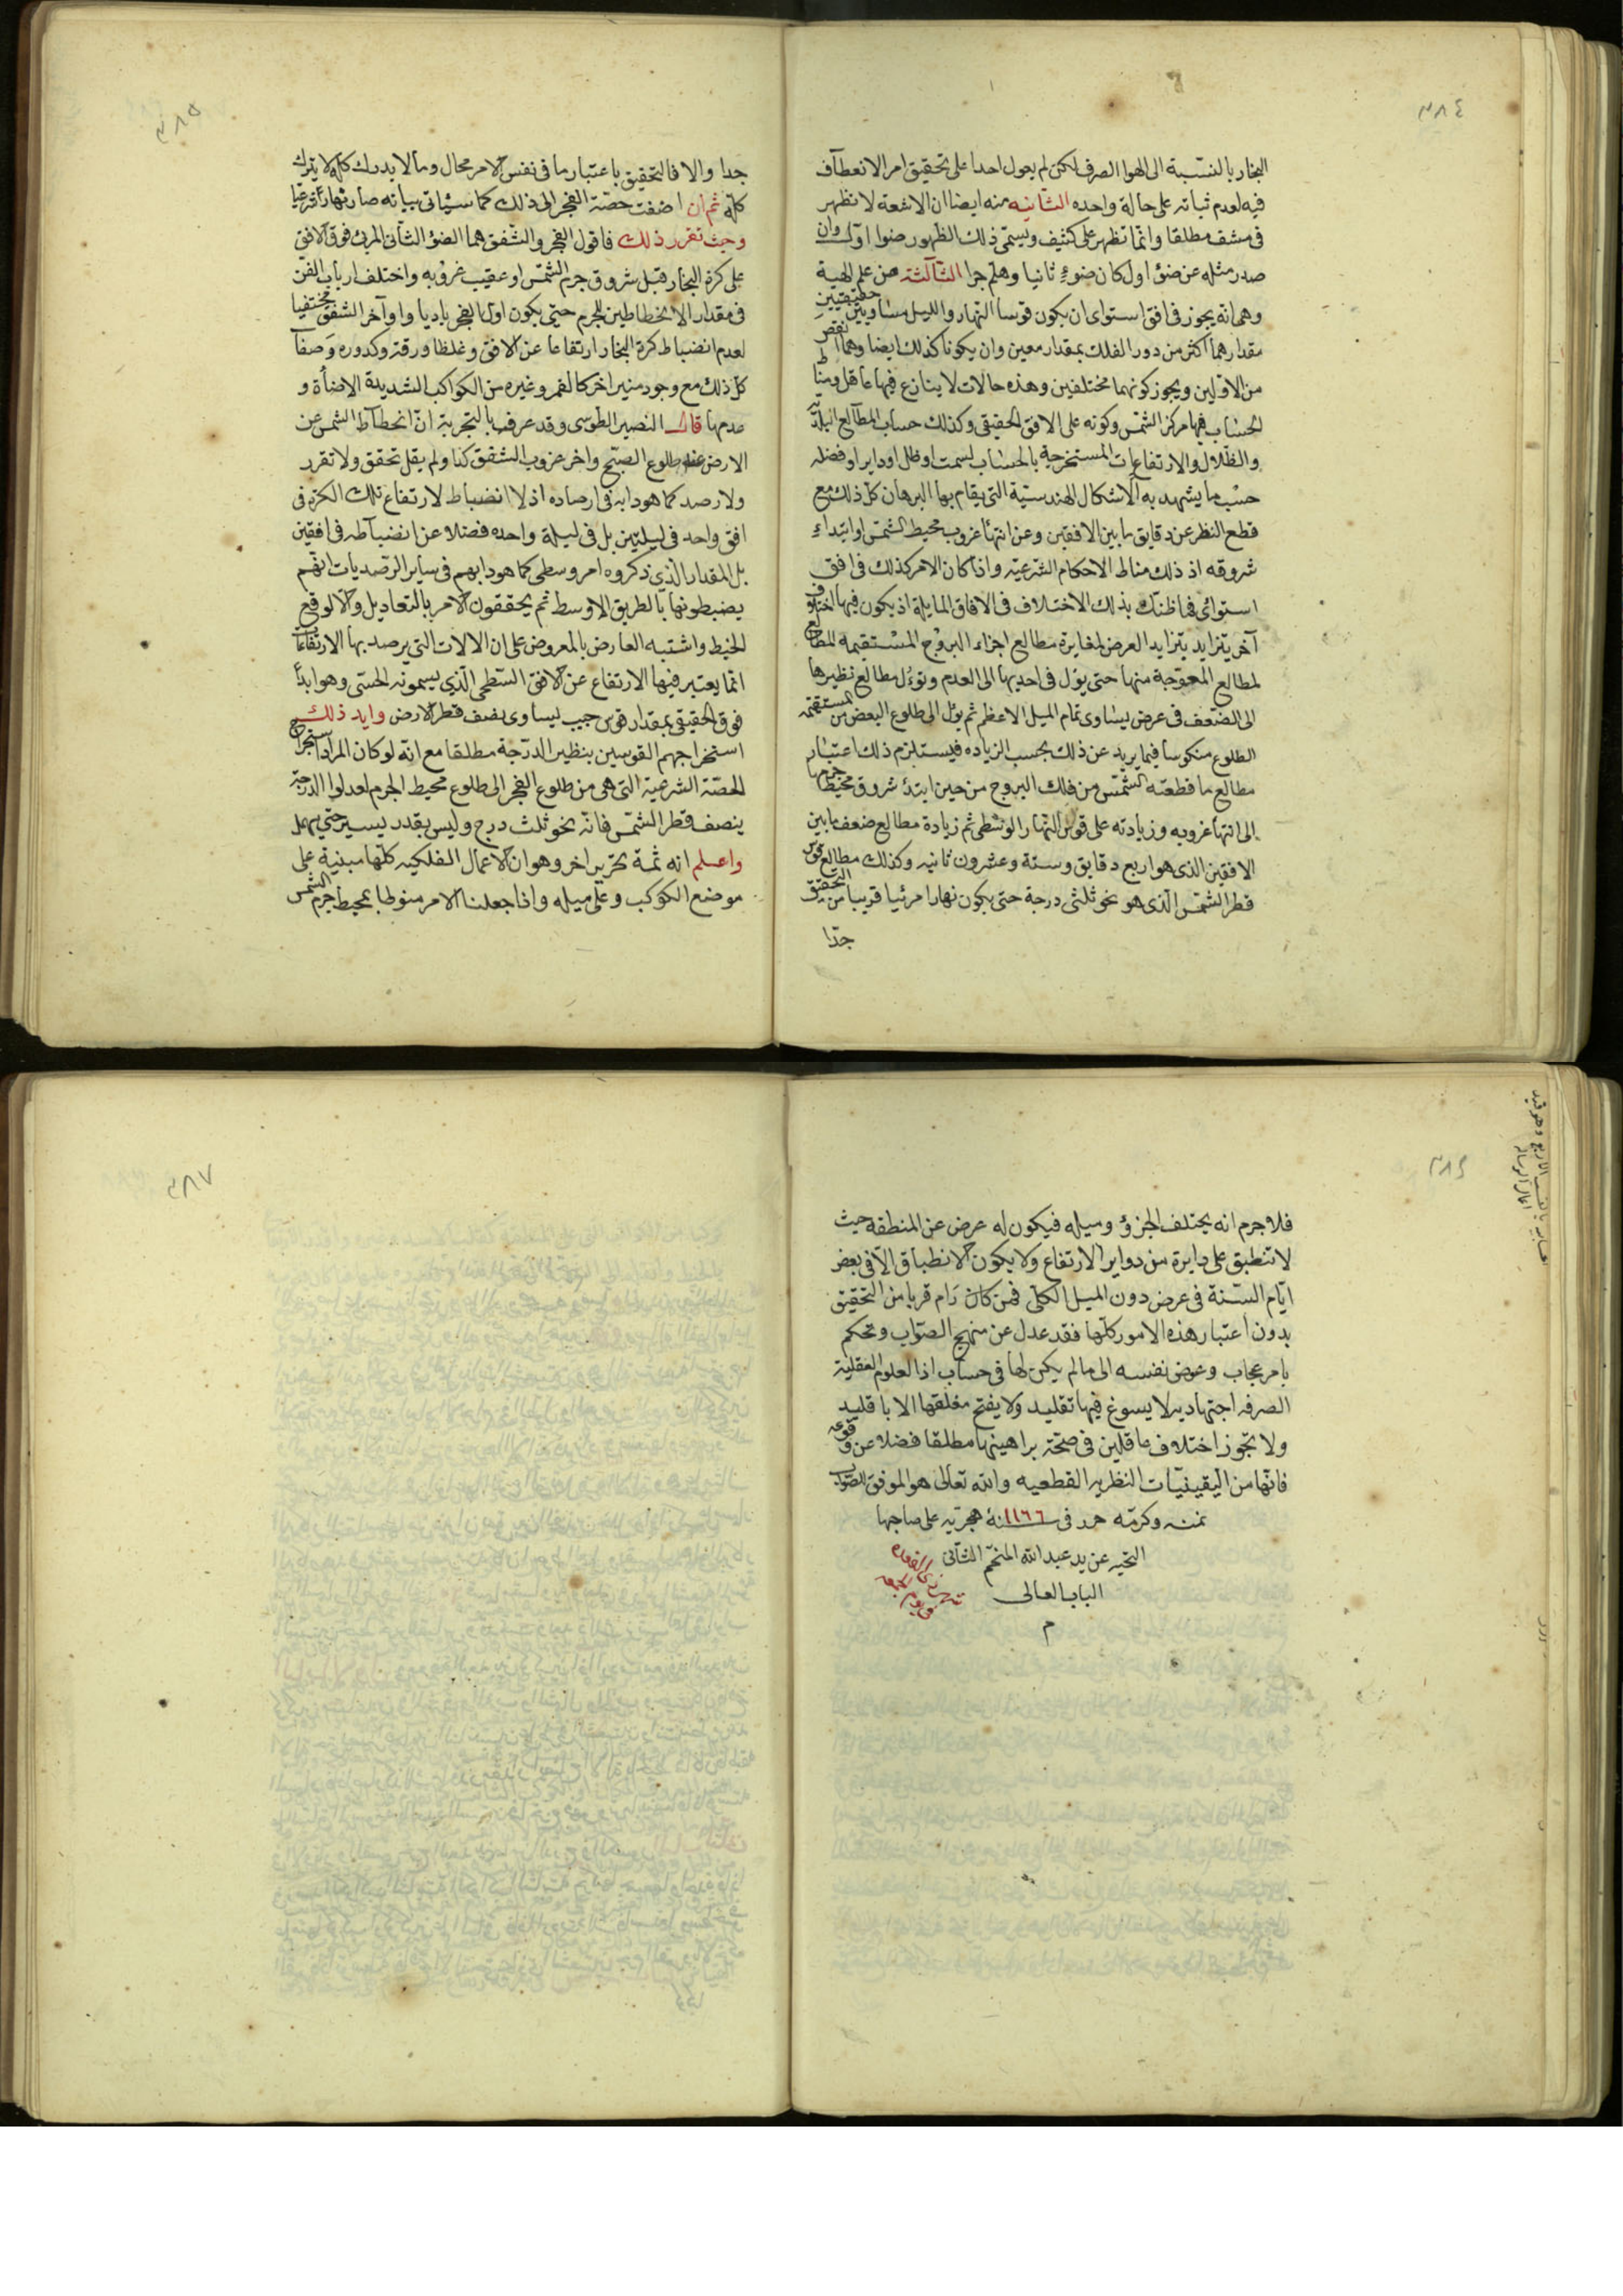 ٣٨٤
البخار بالنسبة الى الهوا الصرف لكن لم يعول احدا على تحقيق امر الانعطاف
فيه لعدم ثباته على حالة واحده الثانيه منه ايضا ان الاشعة لا تظهر
فى مشف مطلقا وانما تظهر على كثيف ويسمى ذلك الظهور ضوا اول وان
صدر مثله عن ضوء اول كان ضوء ثانيا وهلم جرا الثالثة من علم الهية
وهى انه يجوز فى افق استواى ان يكون قوسا النهار والليل متساويين حقيقيين
مقدارهما اكثر من دور الفلك بمقدار معين وان يكونا كذلك ايضا وهما انقص
من الاولين ويجوز كونهما مختلفين وهذه حالات لا ينازع فيها عاقل ومناط
الحساب فيها مركز الشمس وكونه على الافق الحقيقى وكذلك حساب المطالع البلدية
والظلال والارتفاعات المستخرجة بالحساب لسمت او ظل او داير او فضله
حسب ما يشهد به الاشكال الهندسية التى يقام بها البرهان كل ذلك مع
قطع النظر عن دقايق ما بين الافقين وعن انتهاء غروب محيط الشمس او ابتداء
شروقه اذ ذلك مناط الاحكام الشرعية واذا كان الامر كذلك فى افق
استوائى فما ظنك بذلك الاختلاف فى الافاق المايلة اذ يكون فيها اختلاف
آخر يتزايد بتزايد العرض لمغايرة مطالع اجزاء البروج المستقيمة المطالع
لمطالع المعوجة منها حتى يؤل فى احديها الى العدم وتؤل مطالع نظيرها
الى الضعف فى عرض يساوى تمام الميل الاعظم ثم يؤل الى طلوع البعض من المستقيمة
الطلوع منكوسا فيما يزيد عن ذلك بحسب الزياده فيستلزم ذلك اعتبار
مطالع ما قطعته الشمس من فلك البروج من حين ابتداء شروق محيط جرمها
الى انتها غروبه وزيادته على قوس النهار الوسطى ثم زيادة مطالع ضعف ما بين
الافقين الذى هو اربع دقايق وستة وعشرون ثانيه وكذلك مطالع قوس
قطر الشمس الذى هو نحو ثلثى درجة حتى يكون نهارا مرئيا قريبا من التحقيق
جدا
٣٨٥
جدا والا فالتحقيق باعتبار ما فى نفس الامر محال وما لا يدرك كله لا يترك
كله ثم ان اضفت حصة الفجر الى ذلك كما سياتى بيانه صار نهارا شرعيا
وحيث تقرر ذلك فاقول الفجر والشفق هما الضوء الثانى المرئ فوق الافق
على كرة البخار قبل شروق جرم الشمس او عقيب غروبه واختلف ارباب الفن
فى مقدار الانحطاطين للجرم حتى يكون اول الفجر باديا واواخر الشفق مختفيا
لعدم انضباط كرة البخار ارتفاعا عن الافق وغلظا ورقة وكدوره وصفا
كل ذلك مع وجود منير اخر كالقمر وغيره من الكواكب الشديدة الاضاءة و
عدمها قال النصير الطوسى وقد عرف بالتجربة ان انحطاط الشمس عن
الارض عند طلوع الصبح واخر غروب الشفق كذا ولم يقل تحقق ولا تقرر
ولا رصد كما هو دابه فى ارصاده اذ لا انضباط لارتفاع تلك الكرة فى
افق واحد فى ليلتين بل فى ليلة واحده فضلا عن انضباطه فى افقين
بل المقدار الذى ذكروه امر وسطى كما هو دابهم فى ساير الرصديات انهم
يضبطونها بالطريق الاوسط ثم يحققون الامر بالتعاديل والا لوقع
الخبط واشتبه العارض بالمعروض على ان الالات التى يرصد بها الارتفاعات
انما يعتبر فيها الارتفاع عن الافق السطحى الذى يسمونه الحسى وهو ابدا
فوق الحقيقى بمقدار قوس جيب ليساوى نصف قطر الارض وايد ذلك
استخراجهم القوسين بنظير الدرجة مطلقا مع انه لو كان المراد استخراج
الحصة الشرعية التى هى من طلوع الفجر الى طلوع محيط الجرم لعدلوا الدرجة
بنصف قطر الشمس فانه نحو ثلث درج وليس بقدر يسير حتى يهمل
واعلم انه ثمة تحرير اخر وهو ان الاعمال الفلكيه كلها مبنية على
موضع الكوكب وعلى ميله واذا جعلنا الامر منوطا بمحيط جرم الشمس
٣٨٦
فلا جرم انه يختلف الجزؤ وميله فيكون له عرض عن المنطقه حيث
لا تنطبق على دايرة من دواير الارتفاع ولا يكون الانطباق الا فى بعض
ايام السنة فى عرض دون الميل الكلى فمن كان رام قربا من التحقيق
بدون اعتبار هذه الامور كلها فقد عدل عن منهج الصواب وتحكم
بامر عجاب وعرض نفسه الى ما لم يكن لها فى حساب اذ العلوم العقلية
الصرفه اجتهاديه لا يسوغ فيها تقليد ولا يفتح مغلقها الا باقليد
ولا تجوز اختلاف عاقلين فى صحة براهينها مطلقا فضلا عن وقوعه
فانها من اليقينيات النظريه القطعيه والله تعالى هو الموفق للصواب
بمنه وكرمه حرر فى سنة ١١٦٦ هجريه على صاحبها
التحيه عن يد عبد الله المنجم الثانى
الباب العالى
م
٣٨٧